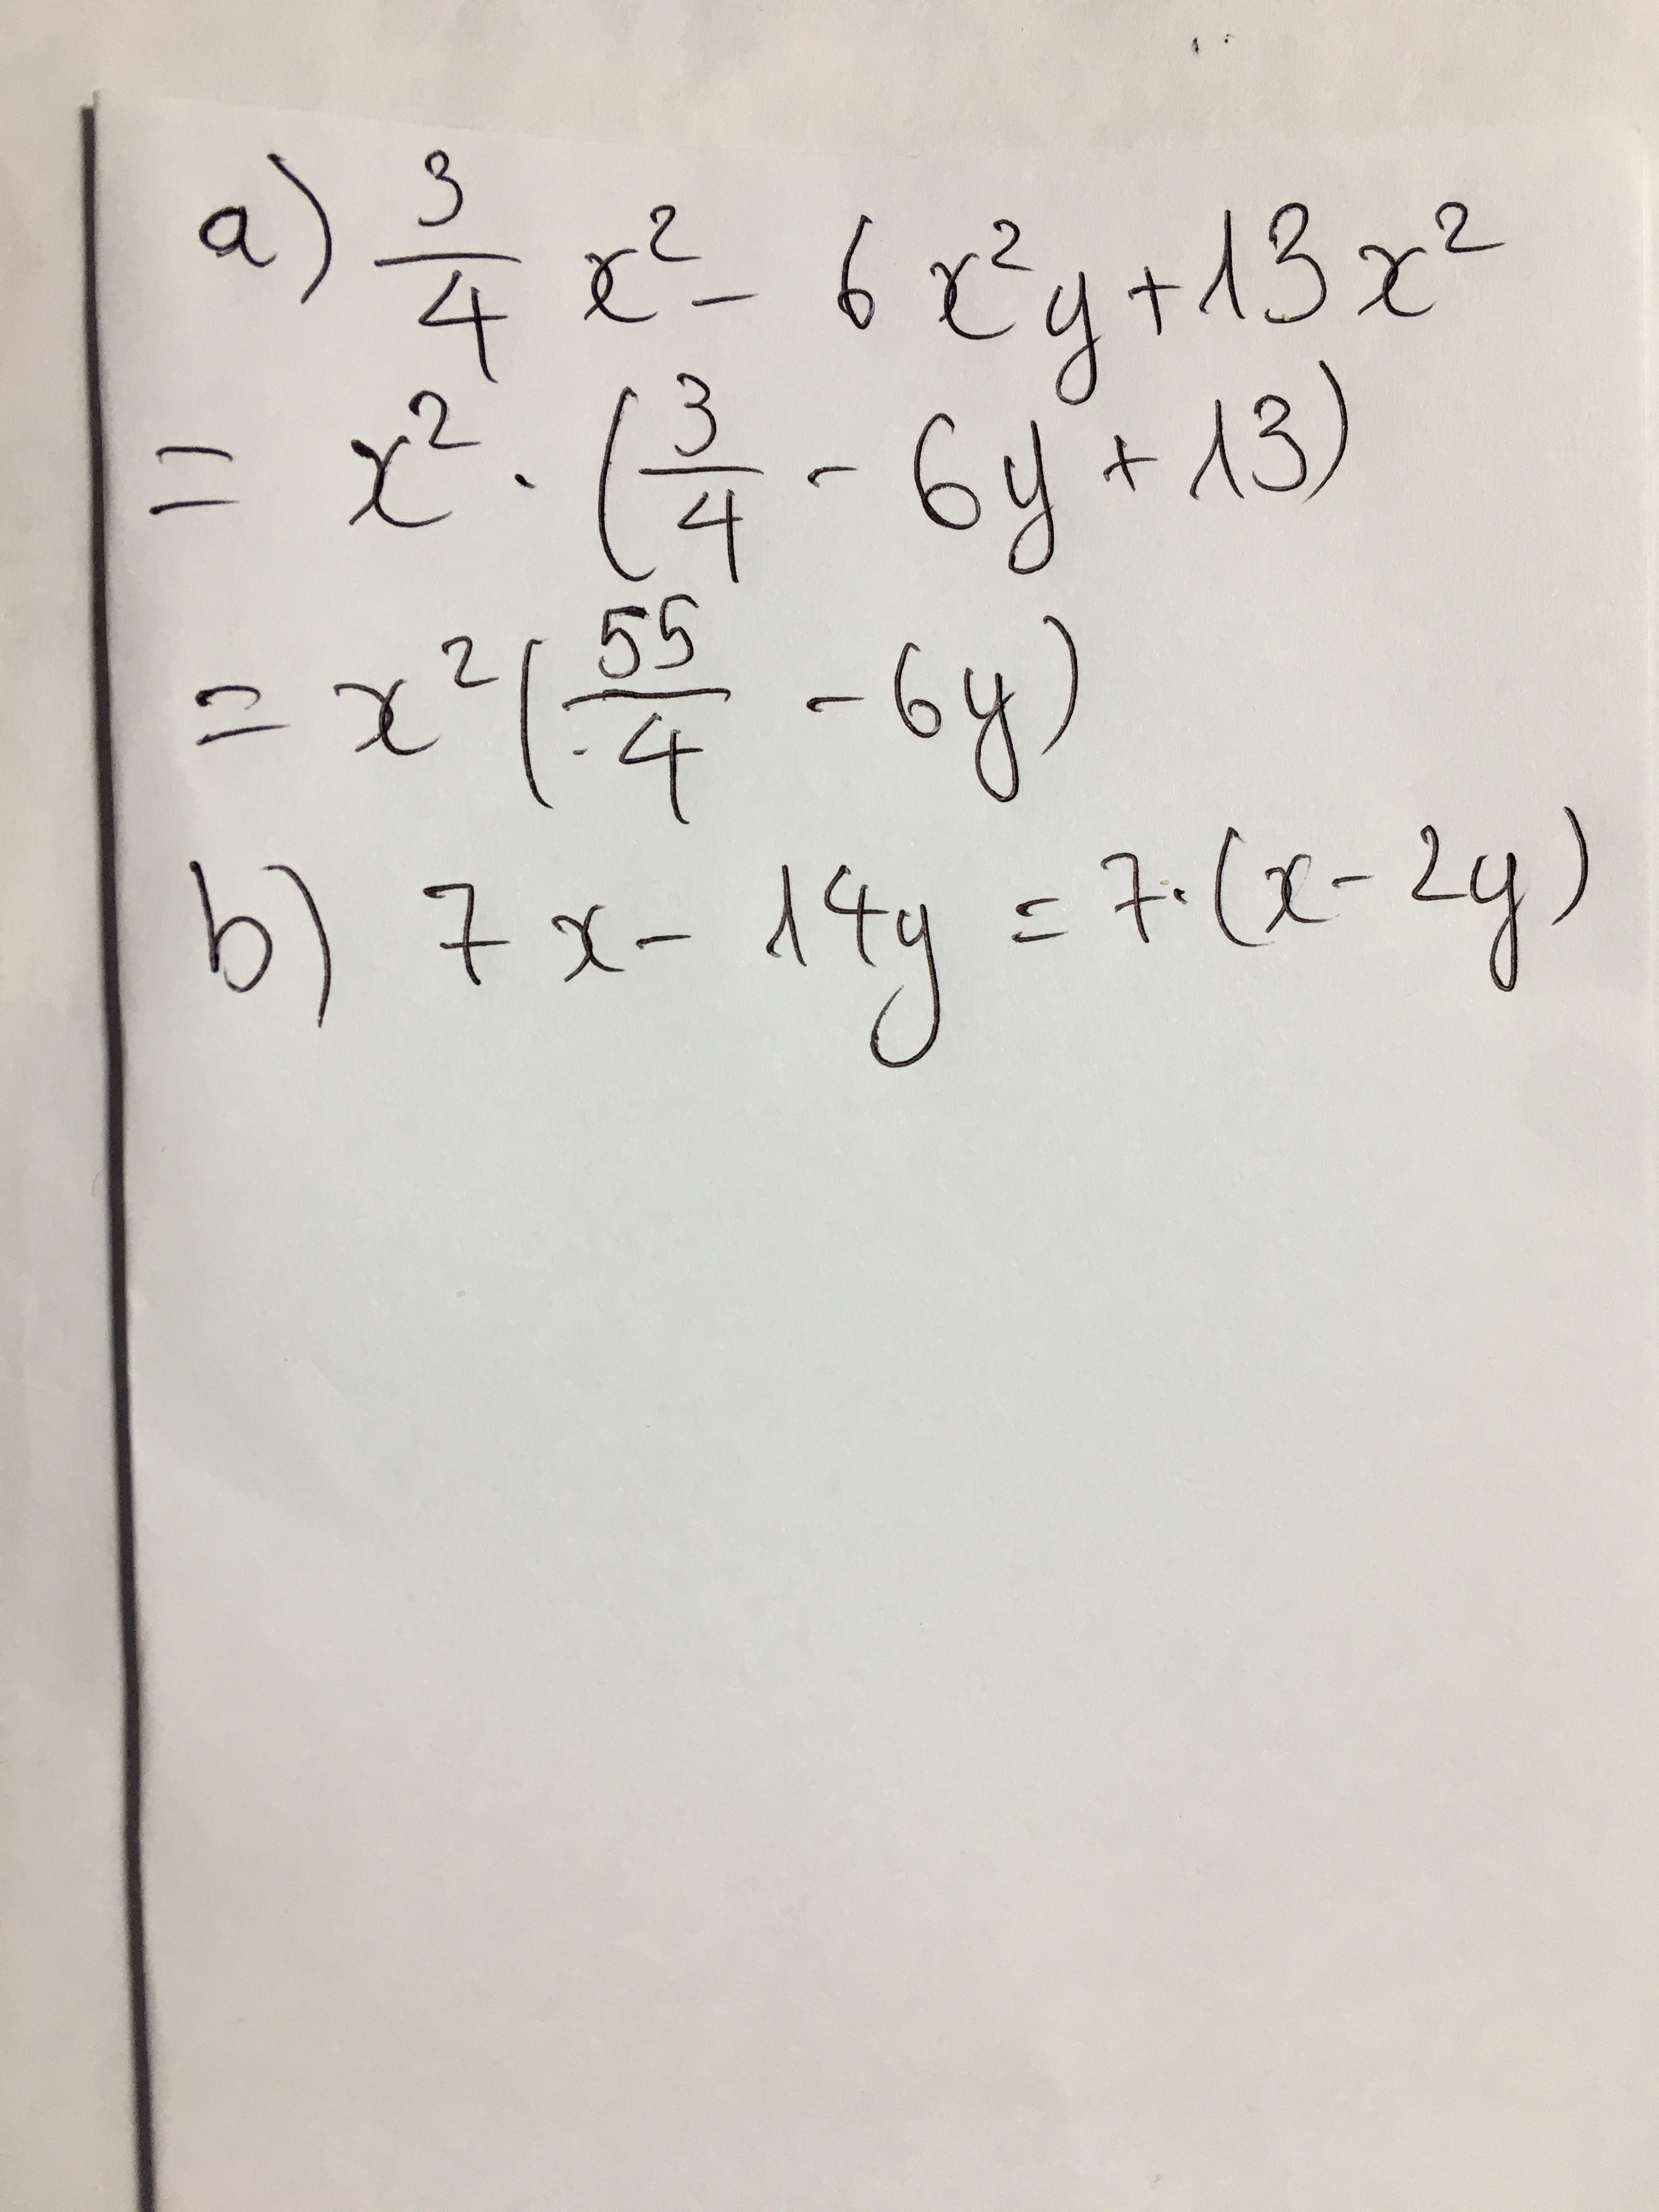 a) 3/4 x² - 6x²y + 13x²
= x² · (3/4 - 6y + 13)
= x² (55/4 - 6y)
b) 7x - 14y = 7·(x - 2y)